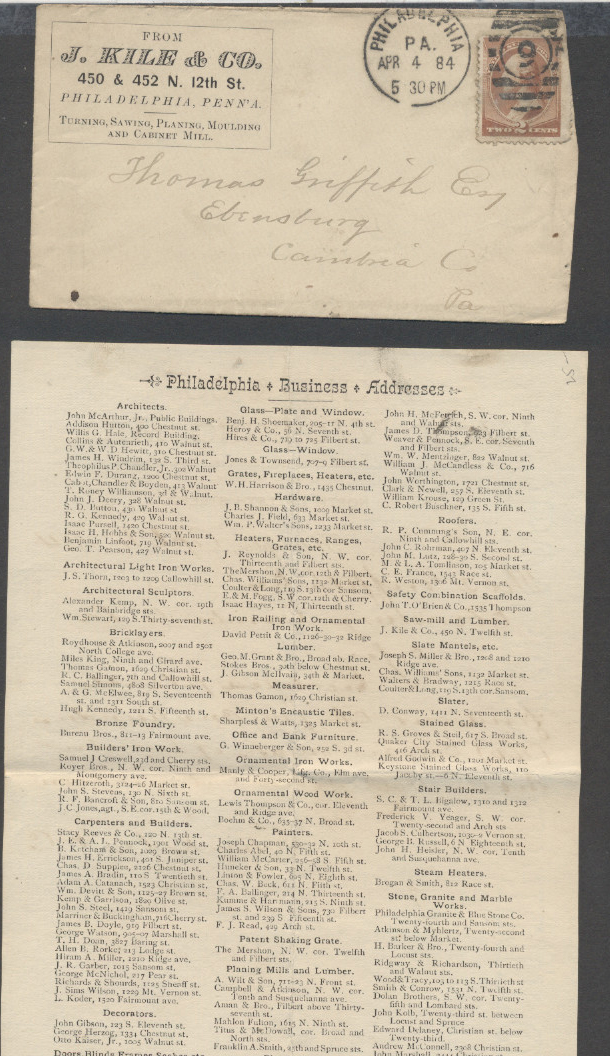 FROM
J. KILE & CO.
450 & 452 N. 12th St.
PHILADELPHIA, PENN'A.
TURNING, SAWING, PLANING, MOULDING
AND CABINET MILL.
PHILADELPHIA
PA.
APR 4 84
5 30 PM
9
TWO 2 CENTS
Thomas Griffith Esq
Ebensburg
Cambria Co
Pa
Philadelphia Business Addresses
Architects.
John McArthur, Jr., Public Buildings.
Addison Hutton, 400 Chestnut st.
Willis G. Hale, Record Building.
Collins & Autenrieth, 410 Walnut st.
G. W. & W. D. Hewitt, 310 Chestnut st.
James H. Windrim, 132 S. Third st.
Theophilus P. Chandler, Jr., 302 Walnut
Edwin F. Durang, 1200 Chestnut st.
Cabot, Chandler & Boyden, 413 Walnut
T. Roney Williamson, 3d & Walnut.
John J. Deery, 328 Walnut st.
S. D. Button, 430 Walnut st
R. G. Kennedy, 429 Walnut st.
Isaac Pursell, 1420 Chestnut st.
Isaac H. Hobbs & Son, 520 Walnut st.
Benjamin Linfoot, 719 Walnut st.
Geo. T. Pearson, 427 Walnut st.
Architectural Light Iron Works.
J. S. Thorn, 1203 to 1209 Callowhill st.
Architectural Sculptors.
Alexander Kemp, N. W. cor. 19th
and Bainbridge sts.
Wm. Stewart, 129 S. Thirty-seventh st.
Bricklayers.
Roydhouse & Atkinson, 2007 and 2501
North College ave.
Miles King, Ninth and Girard ave.
Thomas Gamon, 1629 Christian st.
R. C. Ballinger, 7th and Callowhill st.
Samuel Simons, 4808 Silverton ave.
A. & G. McElwee, 819 S. Seventeenth
st. and 1311 South st.
Hugh Kennedy, 1211 S. Fifteenth st.
Bronze Foundry.
Bureau Bros., 811-13 Fairmount ave.
Builders' Iron Work.
Samuel J Creswell, 23d and Cherry sts.
Royer Bros., N. W. cor. Ninth and
Montgomery ave.
C. Hitzeroth, 3124-26 Market st.
John S. Stevens, 130 N. Sixth st.
R. F. Bancroft & Son, 810 Sansom st.
J. C. Jones, agt., S. E. cor. 15th & Wood.
Carpenters and Builders.
Stacy Reeves & Co., 120 N. 13th st.
J. E. & A. L. Pennock, 1901 Wood st.
B. Ketcham & Son, 1029 Brown st.
James H. Errickson, 401 S. Juniper st.
Chas. D. Supplee, 2126 Chestnut st.
James A. Bradin, 110 S Twentieth st.
Adam A. Catanach, 1523 Christian st.
Wm. Devitt & Son, 1125-27 Brown st.
Kemp & Garrison, 1829 Olive st.
John S. Steel, 1429 Sansom st.
Marriner & Buckingham, 716 Cherry st.
James B. Doyle, 919 Filbert st.
George Watson, 905-07 Marshall st.
T. H. Doan, 3827 Baring st.
Allen B. Rorke, 213 Lodge st.
Hiram A. Miller, 1210 Ridge ave.
J. R. Garber, 1015 Sansom st.
George McNichol, 217 Pear st.
Richards & Shourds, 1125 Sheaff st.
J. Sims Wilson, 1229 Mt. Vernon st.
L. Koder, 1320 Fairmount ave.
Decorators.
John Gibson, 223 S. Eleventh st.
George Herzog, 1334 Chestnut st.
Otto Kaiser, Jr., 1005 Walnut st.
Glass—Plate and Window.
Benj. H. Shoemaker, 205-11 N. 4th st.
Heroy & Co., 56 N. Seventh st.
Hires & Co., 719 to 725 Filbert st.
Glass—Window.
Jones & Townsend, 707-9 Filbert st.
Grates, Fireplaces, Heaters, etc.
W. H. Harrison & Bro., 1435 Chestnut.
Hardware.
J. B. Shannon & Sons, 1009 Market st.
Charles J. Field, 633 Market st.
Wm. P. Walter's Sons, 1233 Market st.
Heaters, Furnaces, Ranges,
Grates, etc.
J. Reynolds & Son, N. W. cor.
Thirteenth and Filbert sts.
The Mershon, N. W. cor. 12th & Filbert.
Chas. Williams' Sons, 1132 Market st.
Coulter & Long, 119 S. 13th cor Sansom.
E. & M. Fogg, S. W. cor. 12th & Cherry.
Isaac Hayes, 11 N. Thirteenth st.
Iron Railing and Ornamental
Iron Work.
David Pettit & Co., 1126-30-32 Ridge
Lumber.
Geo. M. Grant & Bro., Broad ab. Race,
Stokes Bros., 30th below Chestnut st.
J. Gibson McIlvain, 34th & Market.
Measurer.
Thomas Gamon, 1629 Christian st.
Minton's Encaustic Tiles.
Sharpless & Watts, 1325 Market st.
Office and Bank Furniture.
G. Winneberger & Son, 252 S. 3d st.
Ornamental Iron Works.
Manly & Cooper, Mfg. Co., Elm ave.
and Forty-second st.
Ornamental Wood Work.
Lewis Thompson & Co., cor. Eleventh
and Ridge ave.
Boehm & Co., 635-37 N. Broad st.
Painters.
Joseph Chapman, 530-32 N. 20th st.
Charles Abel, 40 N. Fifth st.
William McCarter, 256-58 S. Fifth st.
Huneker & Son, 33 N. Twelfth st.
Linton & Fowler, 605 N. Eighth st.
Chas. W. Beck, 611 N. Fifth st.
F. A. Ballinger, 214 N. Thirteenth st.
Kumme & Harmann, 215 S. Ninth st.
James S. Wilson & Sons, 730 Filbert
st. and 239 S. Fifteenth st.
F. J. Read, 429 Arch st.
Patent Shaking Grate.
The Mershon, N. W. cor. Twelfth
and Filbert sts.
Planing Mills and Lumber.
A. Wilt & Son, 711-23 N. Front st.
Campbell & Atkinson, N. W. cor.
Tenth and Susquehanna ave.
Aman & Bro., Filbert above Thirty-
seventh st.
Mahlon Fulton, 1615 N. Ninth st.
Titus & McDowall, cor. Broad and
North sts.
Franklin A. Smith, 25th and Spruce sts.
John H. McFetrich, S. W. cor. Ninth
and Walnut sts.
James D. Thompson, Filbert st.
Weaver & Pennock, S. E. cor. Seventh
and Filbert sts.
Wm. W. Mentzinger, 822 Walnut st.
William J. McCandless & Co., 716
Walnut st.
John Worthington, 1721 Chestnut st.
Clark & Newell, 257 S. Eleventh st.
William Krouse, 129 Green st.
C. Robert Buschner, 135 S. Fifth st.
Roofers.
R. P. Cumming's Son, N. E. cor.
Ninth and Callowhill sts.
John C. Rohrman, 407 N. Eleventh st.
John M. Lutz, 128-30 S. Second st.
M. & L. A. Tomlinson, 105 Market st.
C. E. France, 1343 Race st.
R. Weston, 1306 Mt. Vernon st.
Safety Combination Scaffolds.
John T. O'Brien & Co., 1535 Thompson
Saw-mill and Lumber.
J. Kile & Co., 450 N. Twelfth st.
Slate Mantels, etc.
Joseph S. Miller & Bro., 1208 and 1210
Ridge ave.
Chas. Williams' Sons, 1132 Market st.
Walters & Bradway, 1215 Race st.
Coulter & Long, 119 S. 13th cor. Sansom.
Slater.
D. Conway, 1411 N. Seventeenth st.
Stained Glass.
R. S. Groves & Steil, 617 S. Broad st.
Quaker City Stained Glass Works,
416 Arch st.
Alfred Godwin & Co., 1201 Market st.
Keystone Stained Glass Works, 110
Jacoby st.—6 N. Eleventh st.
Stair Builders.
S. C. & T. L. Bigelow, 1310 and 1312
Fairmount ave.
Frederick V. Yeager, S. W. cor.
Twenty-second and Arch sts
Jacob S. Culbertson, 1030-2 Vernon st.
George B. Russell, 6 N. Eighteenth st.
John H. Heisler, N. W. cor. Tenth
and Susquehanna ave.
Steam Heaters.
Brogan & Smith, 812 Race st.
Stone, Granite and Marble
Works.
Philadelphia Granite & Blue Stone Co.
Twenty-fourth and Sansom sts.
Atkinson & Myhlertz, Twenty-second
st. below Market.
H. Barker & Bro., Twenty-fourth and
Locust sts.
Ridgway & Richardson, Thirtieth
and Walnut sts.
Wood & Tracy, 105 to 113 S. Thirtieth st
Smith & Conrow, 1531 N. Twelfth st.
Dolan Brothers, S. W. cor. Twenty-
fifth and Lombard sts.
John Kolb, Twenty-third st. between
Locust and Spruce
Edward Delaney, Christian st. below
Twenty-third.
Andrew McConnell, 2308 Christian st.